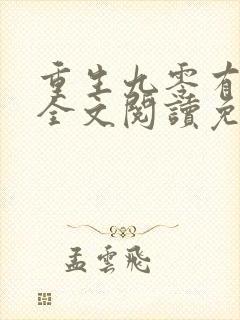 重生九零有
全文閱讀免
孟雲飛